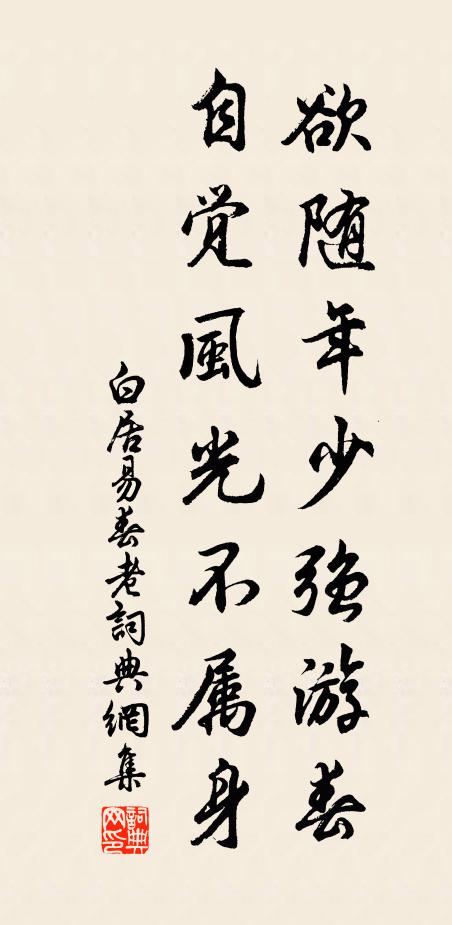 欲随年少強游春
自覚風光不属身
白居易春老詞典網集
詞典網印